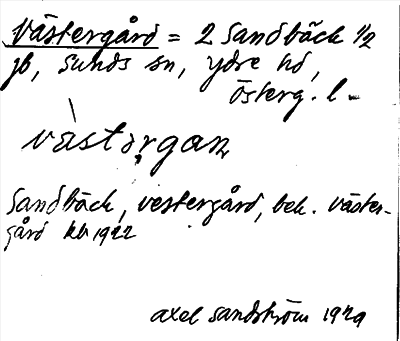 Västergård = 2 Sandbäck 1/2
jb, Sunds sn, Ydre hd,
Österg. l.
västərgan
Sandbäck, vestergård, bek. väster-
gård kb 1922
axel sandström 1929